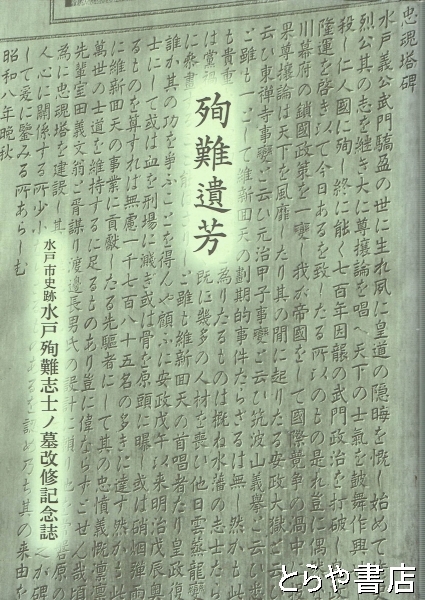 忠魂塔碑
水戸義公武門驕盈の世に生れ夙に皇道の隠晦を慨し始めて尊
烈公其の志を継き大に尊攘論を唱へ天下の士氣を鼓舞作興
殺し仁人國に殉 終に能く七百年因襲の武門政治を打破し
隆運を啓き以て今日あるを致したる所のもの是れ豈に偶
川幕府の鎖國政策を一變し我か帝國をして國際競爭の渦中
果尊攘論は天下を風靡したり其の間に起りたる安政大獄と云ひ
云ひ東禪寺事變と云ひ元治甲子事變と云ひ筑波山義擧と云ひ
ご雖も一として維新回天の劃期的事件たらさるは無し然かも此
為りたるものは概ね水藩の志士たら
既に幾多の人材を喪い他日雲蒸龍變
ご雖も維新回天の首唱者たり皇政復
誰か其の功を爭ふことを得んや顧ふに安政戊午以来明治戊辰
士にして或は血を刑場に濺き或は骨を原頭に曝し或は硝煙彈雨
るものを算すれは無慮一千七百八十五名の多きに達す然かも
に維新回天の事業に貢獻したる先驅者にして其の忠憤義慨凛凛
萬世の士道を維持するに足るものあり豈に偉ならすとせんや
先輩室田義文翁と胥謀り渡邊長男氏の設計に
為に忠魂塔を建設し其
人心に關係する所少
して爰に鑒みる所あらしむ
昭和八年晩秋
殉難遺芳
水戸市史跡 水戸殉難志士ノ墓改修記念誌
とらや書店